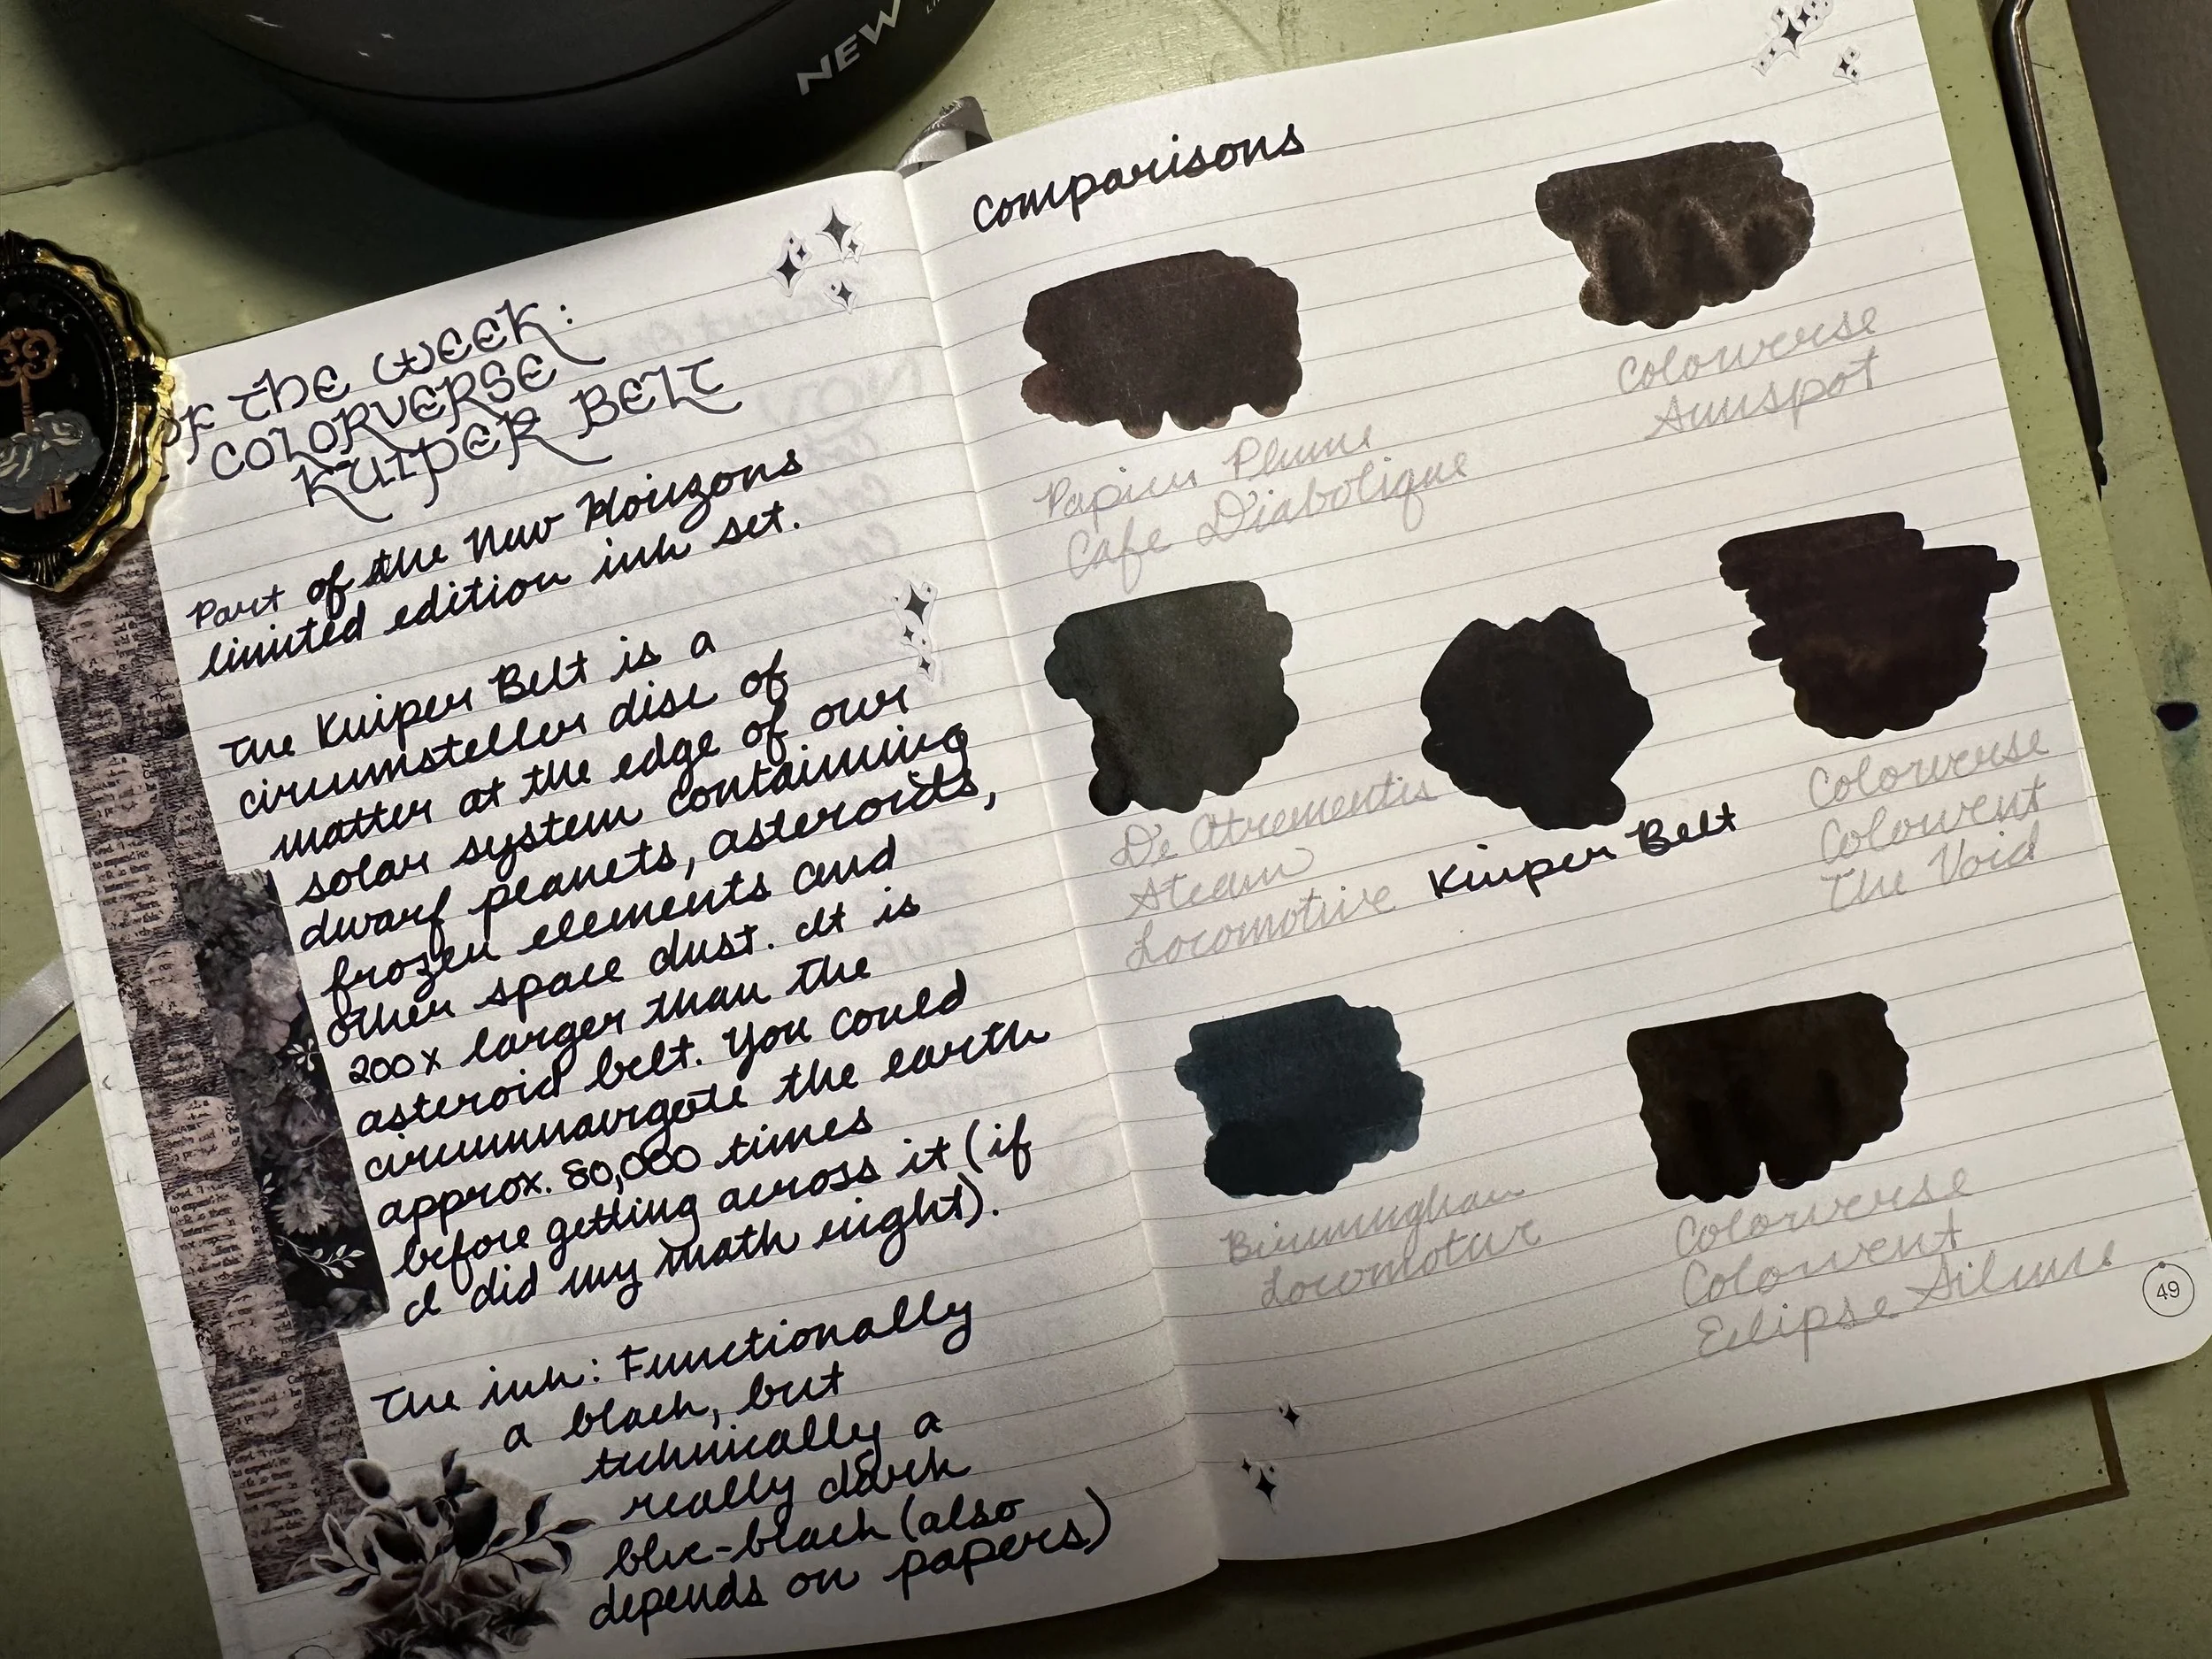 NEW
OF THE WEEK:
COLORVERSE
KUIPER BELT
Part of the New Horizons
limited edition ink set.
The Kuiper Belt is a
circumsteller disc of
matter at the edge of our
solar system containing
dwarf planets, asteroids,
frozen elements and
other space dust. It is
200x larger than the
asteroid belt. You could
circumnavigate the earth
approx. 80,000 times
before getting across it (if
I did my math right).
The ink: Functionally
a black, but
technically a
really dark
blue-black (also
depends on papers)
Comparisons
Colorverse
Sunspot
Papier Plume
Cafe Diabolique
De Atrementis
Steam
Locomotive
Kuiper Belt
Colorverse
Colorvent
The Void
Birmingham
Locomotive
Colorverse
Colorvent
Eclipse Silence
49